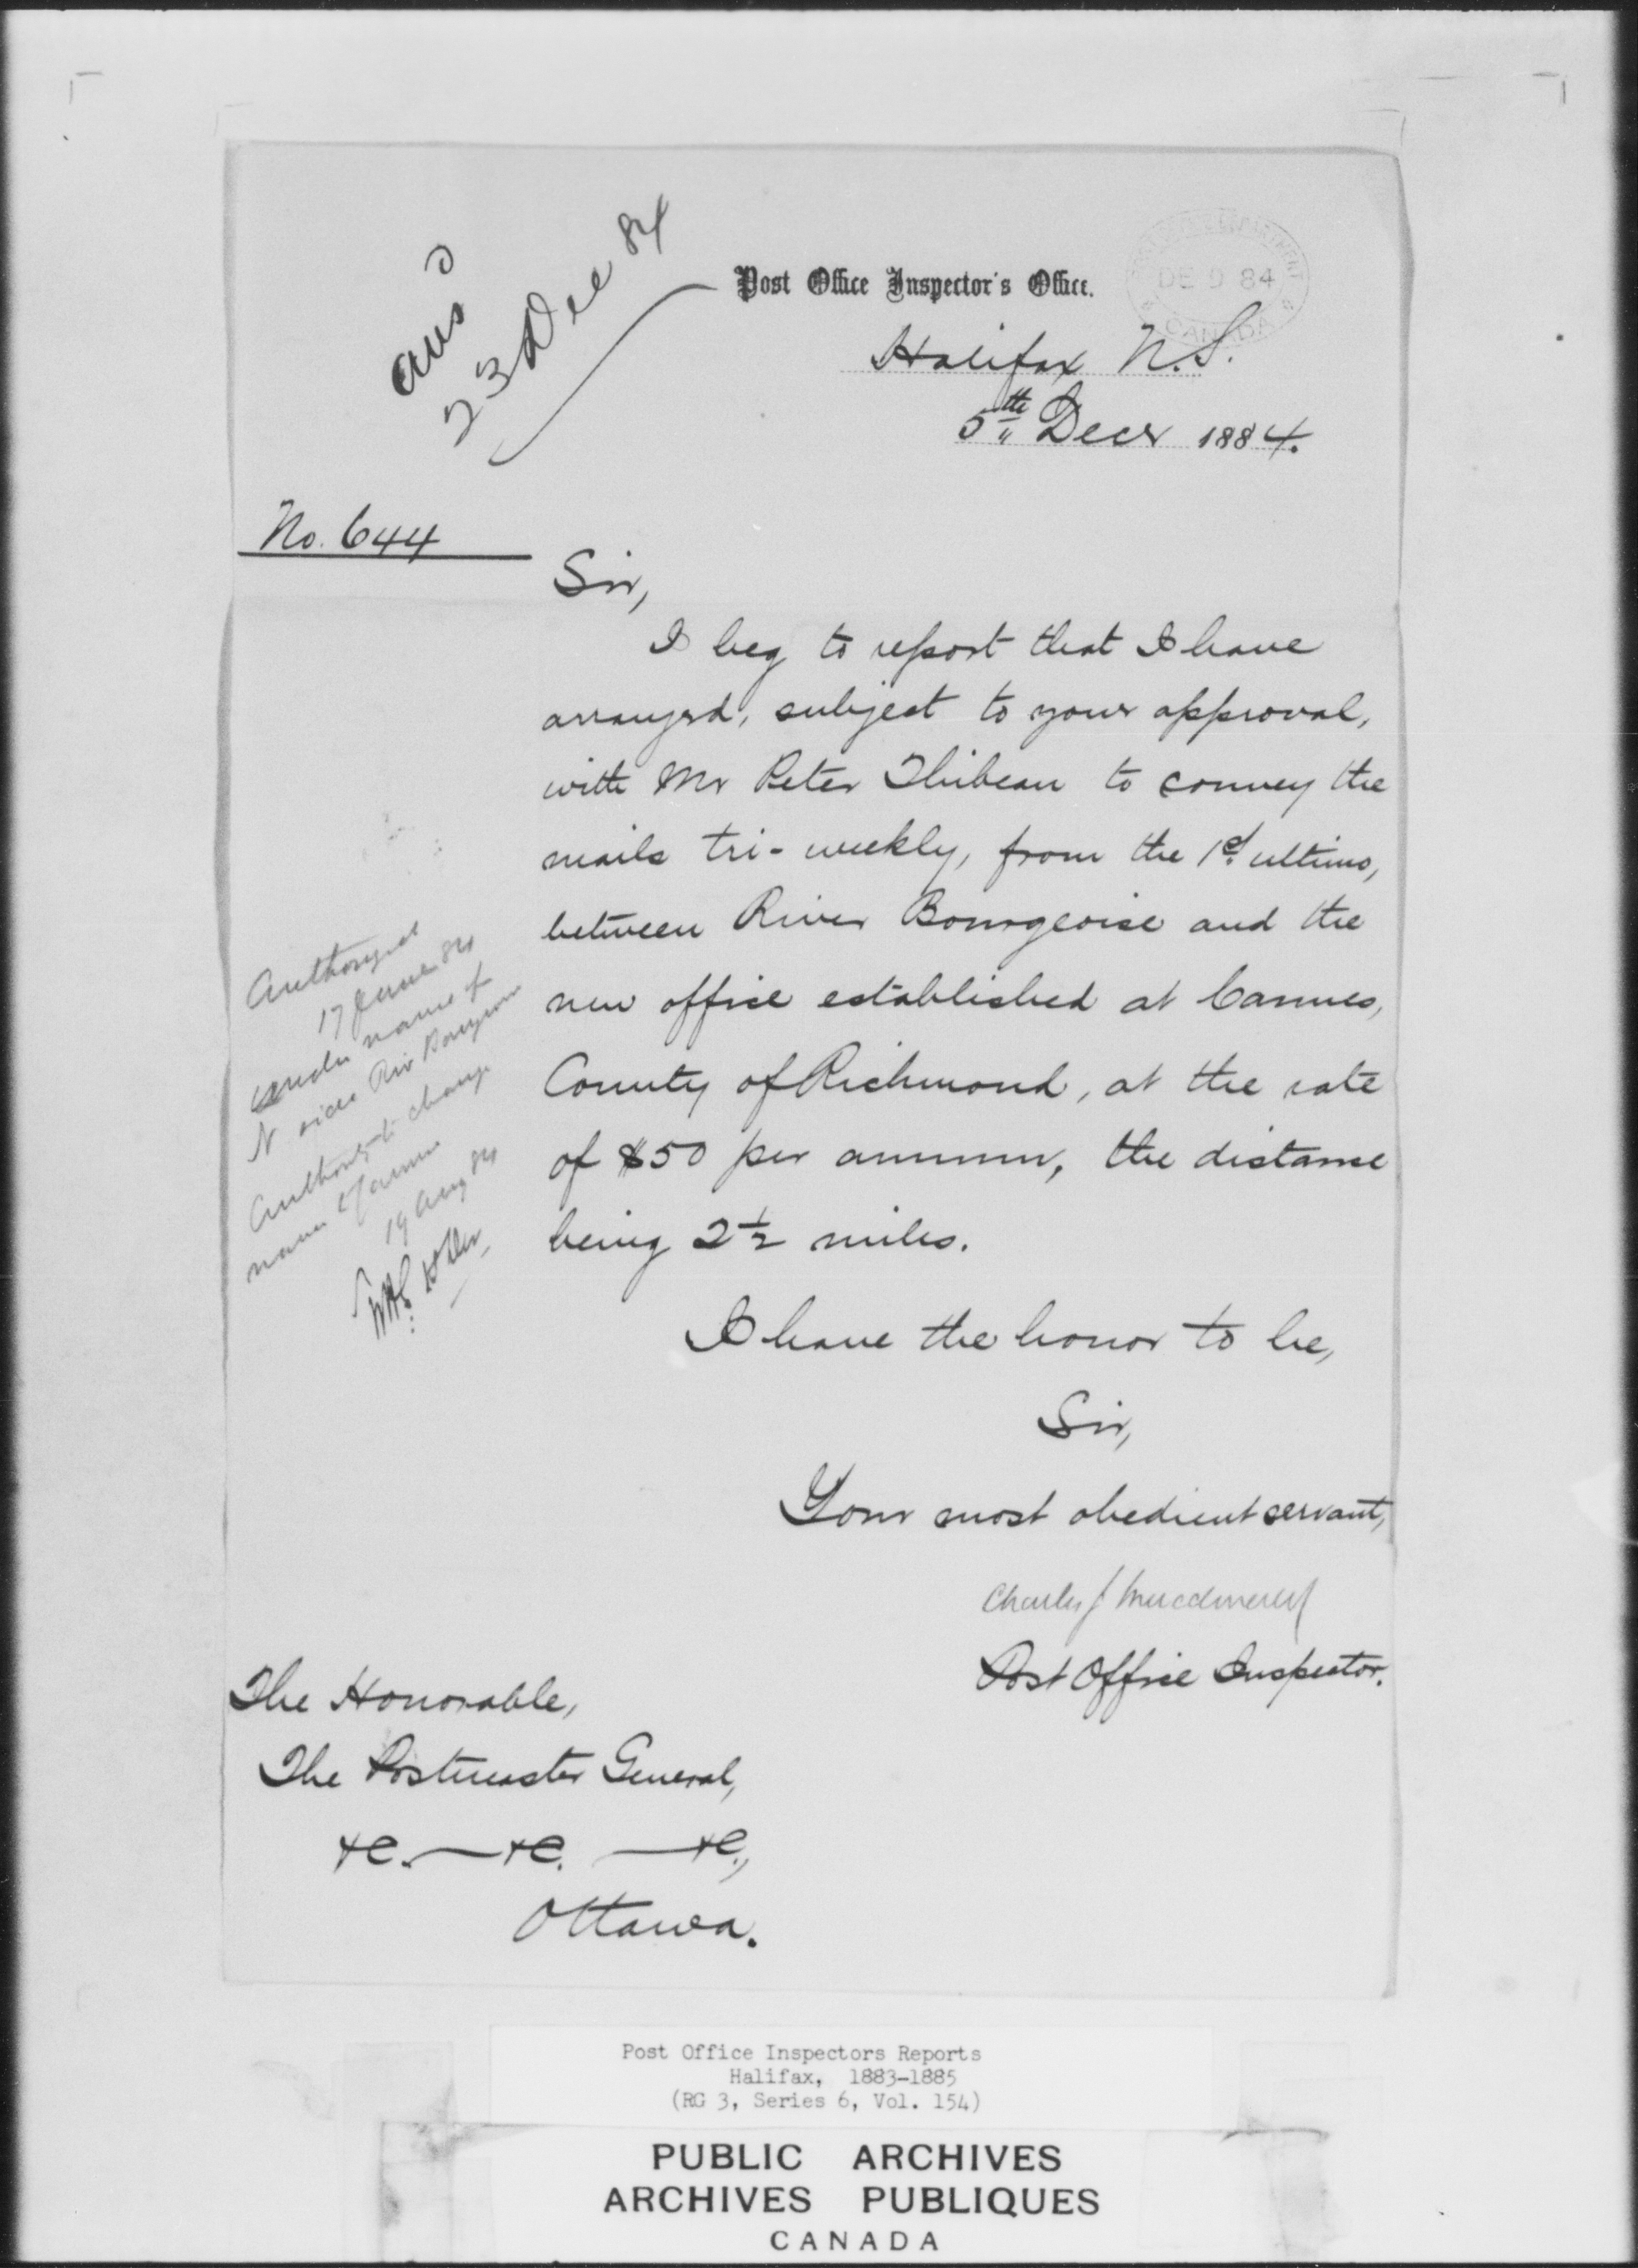 ans'd
23 Dec 84
Post Office Inspector's Office.
DE 9 84
CANADA
Halifax N.S.
5th Decr 1884.
No. 644
Sir,
I beg to report that I have
arranged, subject to your approval,
with Mr Peter Thibeau to convey the
mails tri-weekly, from the 1st ultimo,
between River Bourgeoise and the
new office established at Cannes,
County of Richmond, at the rate
of $50 per annum, the distance
being 2½ miles.
Authorized
17 June 84
under name of
N side Riv Bourgeois
Authority to change
name Cannes
19 Aug 84
I have the honor to be,
Sir,
Your most obedient servant,
Charles J Macdonald
Post Office Inspector.
The Honorable,
The Postmaster General,
&c. — &c. — &c.,
Ottawa.
Post Office Inspectors Reports
Halifax, 1883-1885
(RG 3, Series 6, Vol. 154)
PUBLIC ARCHIVES
ARCHIVES PUBLIQUES
CANADA